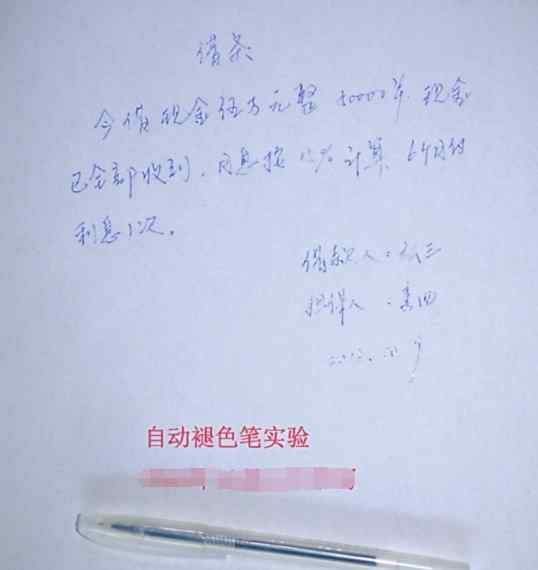 借条
今借现金伍万元整 50000年 现金
已全部收到，月息按 1.2% 计算 6个月付
利息1次。
借款人：张三
担保人：李四
自动褪色笔实验